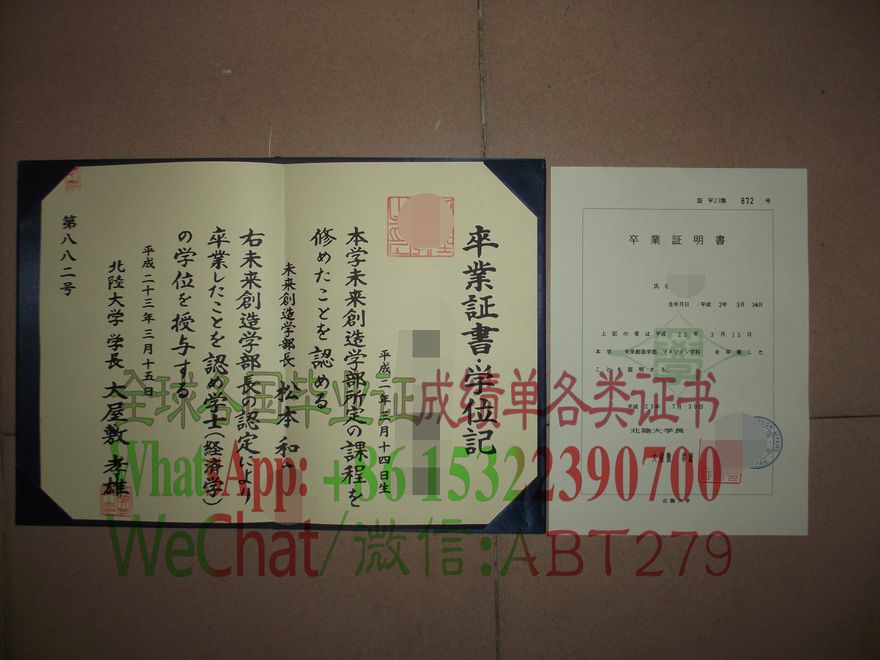 卒業証書・学位記
平成二年三月十四日生
本学未来創造学部所定の課程を
修めたことを認める
未来創造学部長 松本和
右未来創造学部長の認定により
卒業したことを認め学士(経済学)
の学位を授与する
平成二十三年三月十五日
北陸大学 学長 大屋敷 孝雄
第八八二号
証 平23第 872 号
卒業証明書
氏名
生年月日:平成 2年 3月 14日
上記の者は平成 23年 3月 15日
本学 未来創造学部 マネジメント学科 を卒業した
ことを証明する。
平成 23年 7月 30日
北陸大学長
大屋敷 孝雄
北陸大学
全球各国毕业证成绩单各类证书
WhatsApp: +86 15322390700
WeChat/微信:ABT279